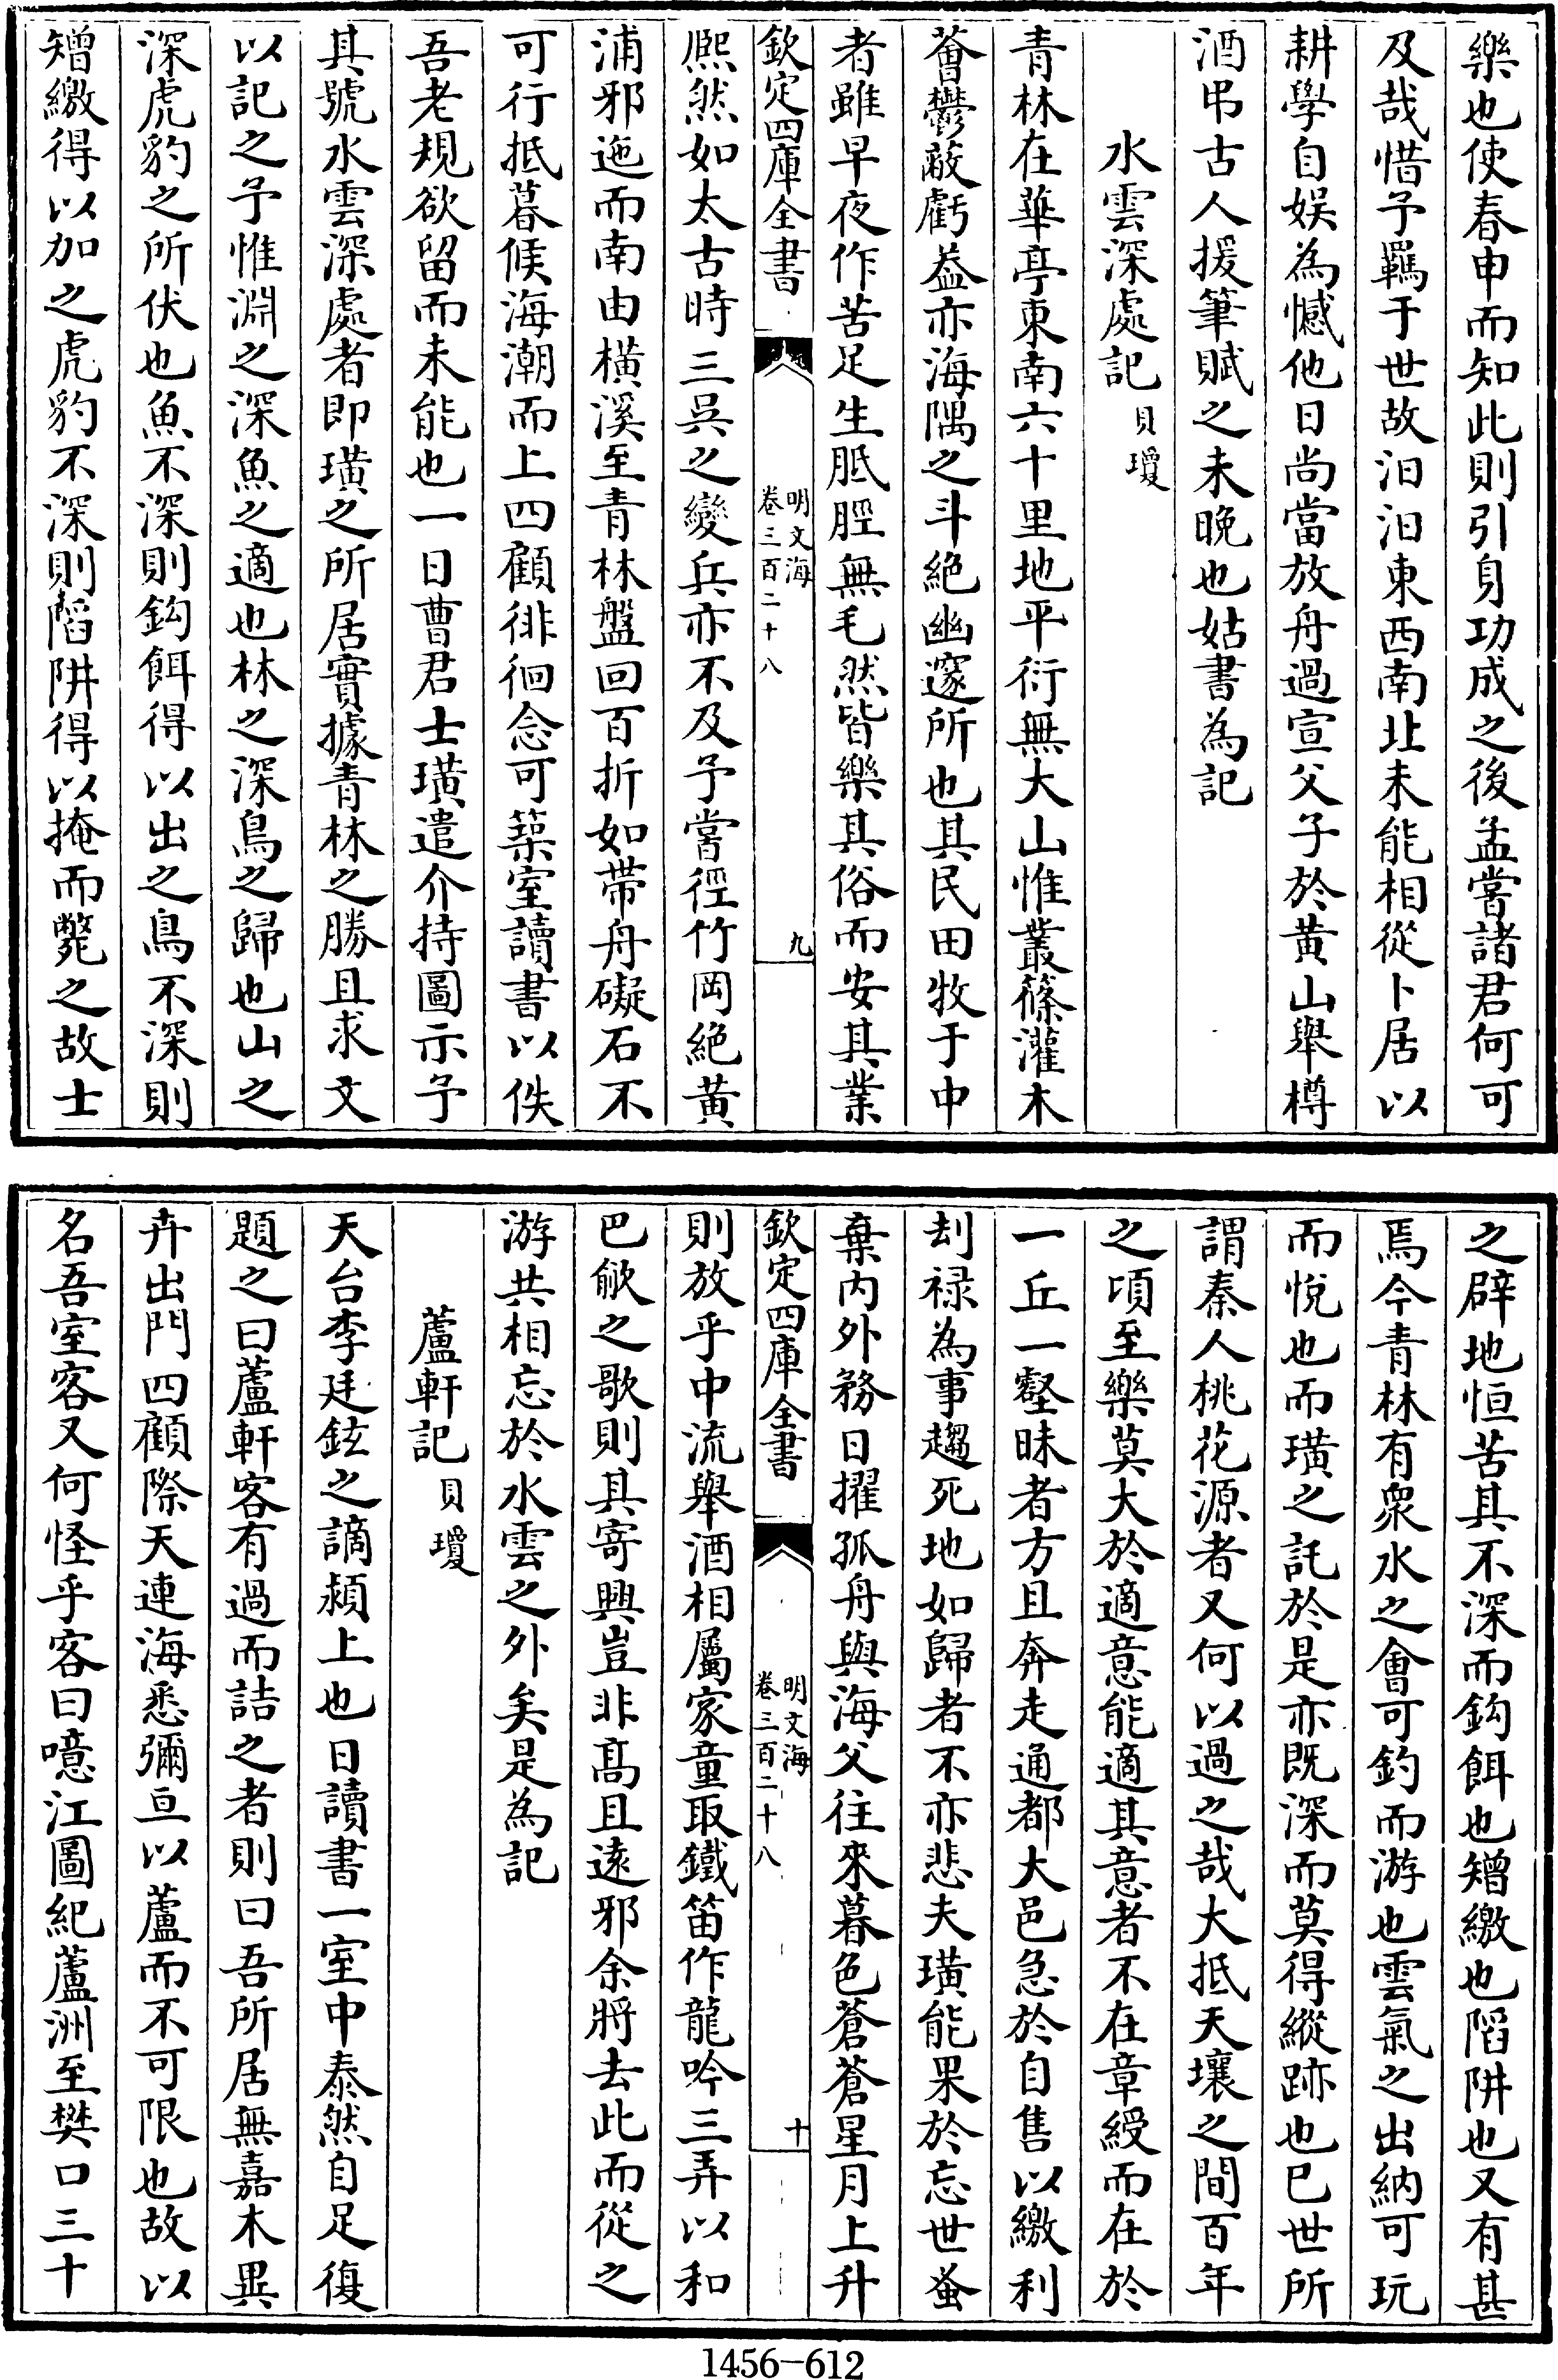 樂也使春申而知此則引身功成之後孟嘗諸君何可
及哉惜予羈于世故汨汨東西南北未能相從卜居以
耕學自娱為憾他日尚當放舟過宣父子於黄山舉樽
酒弔古人援筆賦之未晩也姑書為記
水雲深處記 貝瓊
青林在華亭東南六十里地平衍無大山惟叢篠灌木
薈鬱蔽虧葢亦海隅之斗絶幽邃所也其民田牧于中
者雖早夜作苦足生胝脛無毛然皆樂其俗而安其業
欽定四庫全書
明文海
卷三百二十八
九
熈然如太古時三呉之變兵亦不及予嘗徑竹岡絶黄
浦邪迤而南由横溪至青林盤回百折如帶舟礙石不
可行抵暮候海潮而上四顧徘徊念可築室讀書以佚
吾老規欲留而未能也一日曹君士璜遣介持圖示予
其號水雲深處者即璜之所居實據青林之勝且求文
以記之予惟淵之深魚之適也林之深鳥之歸也山之
深虎豹之所伏也魚不深則鈎餌得以出之鳥不深則
矰繳得以加之虎豹不深則陷阱得以掩而斃之故士
之辟地恒苦其不深而鈎餌也矰繳也陷阱也又有甚
焉今青林有衆水之會可釣而游也雲氣之出納可玩
而悦也而璜之託於是亦既深而莫得縱跡也已世所
謂秦人桃花源者又何以過之哉大抵天壤之間百年
之頃至樂莫大於適意能適其意者不在章綬而在於
一丘一壑昧者方且奔走通都大邑急於自售以繳利
刦禄為事趨死地如歸者不亦悲夫璜能果於忘世蚤
棄内外務日擢孤舟與海父往來暮色蒼蒼星月上升
欽定四庫全書
明文海
卷三百二十八
十
則放乎中流舉酒相屬家童取鐵笛作龍吟三弄以和
巴歈之歌則其寄興豈非髙且逺邪余將去此而從之
游共相忘於水雲之外矣是為記
蘆軒記 貝瓊
天台李廷鉉之謫潁上也日讀書一室中泰然自足復
題之曰蘆軒客有過而詰之者則曰吾所居無嘉木異
卉出門四顧際天連海悉彌亘以蘆而不可限也故以
名吾室客又何怪乎客曰噫江圖紀蘆洲至樊口三十
1456-612